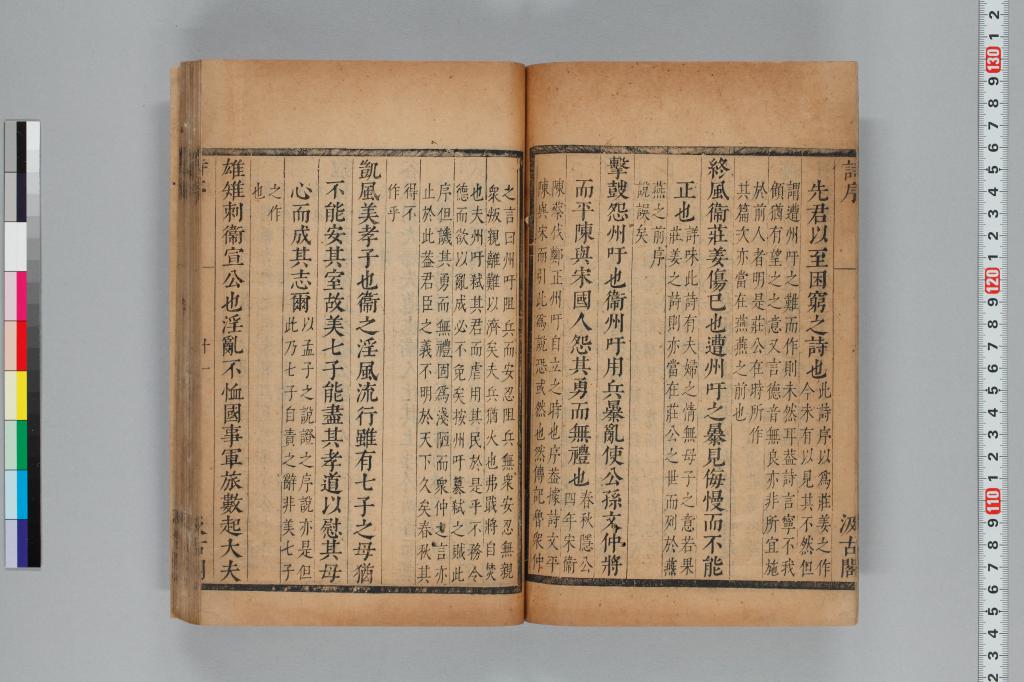 詩序
汲古閣
先君以至困窮之詩也此詩序以爲莊姜之作
今未有以見其不然但
謂遭州吁之難而作則未然耳葢詩言寧不我
顧猶有望之之意又言德音無良亦非所宜施
於前人者明是莊公在時所作
其篇次亦當在燕燕之前也
終風衞莊姜傷已也遭州吁之暴見侮慢而不能
正也詳味此詩有夫婦之情無母子之意若果
莊姜之詩則亦當在莊公之世而列於燕
燕之前序
說誤矣
擊鼓怨州吁也衞州吁用兵暴亂使公孫文仲將
而平陳與宋國人怨其勇而無禮也春秋隱公
四年宋衞
陳蔡伐鄭正州吁自立之時也序葢據詩文平
陳與宋而引此爲說恐或然也然傳記魯衆仲
之言曰州吁阻兵而安忍阻兵無衆安忍無親
衆叛親離難以濟矣夫兵猶火也弗戢將自焚
也夫州吁弑其君而虐用其民於是乎不務令
德而欲以亂成必不免矣按州吁簒弑之賊此
序但譏其勇而無禮固爲淺陋而衆仲之言亦
止於此葢君臣之義不明於天下久矣春秋其
得不
作乎
凱風美孝子也衞之淫風流行雖有七子之母猶
不能安其室故美七子能盡其孝道以慰其母
心而成其志爾以孟子之說證之序說亦是但
此乃七子自責之辭非美七子
之作
也
雄雉刺衞宣公也淫亂不恤國事軍旅數起大夫
十一